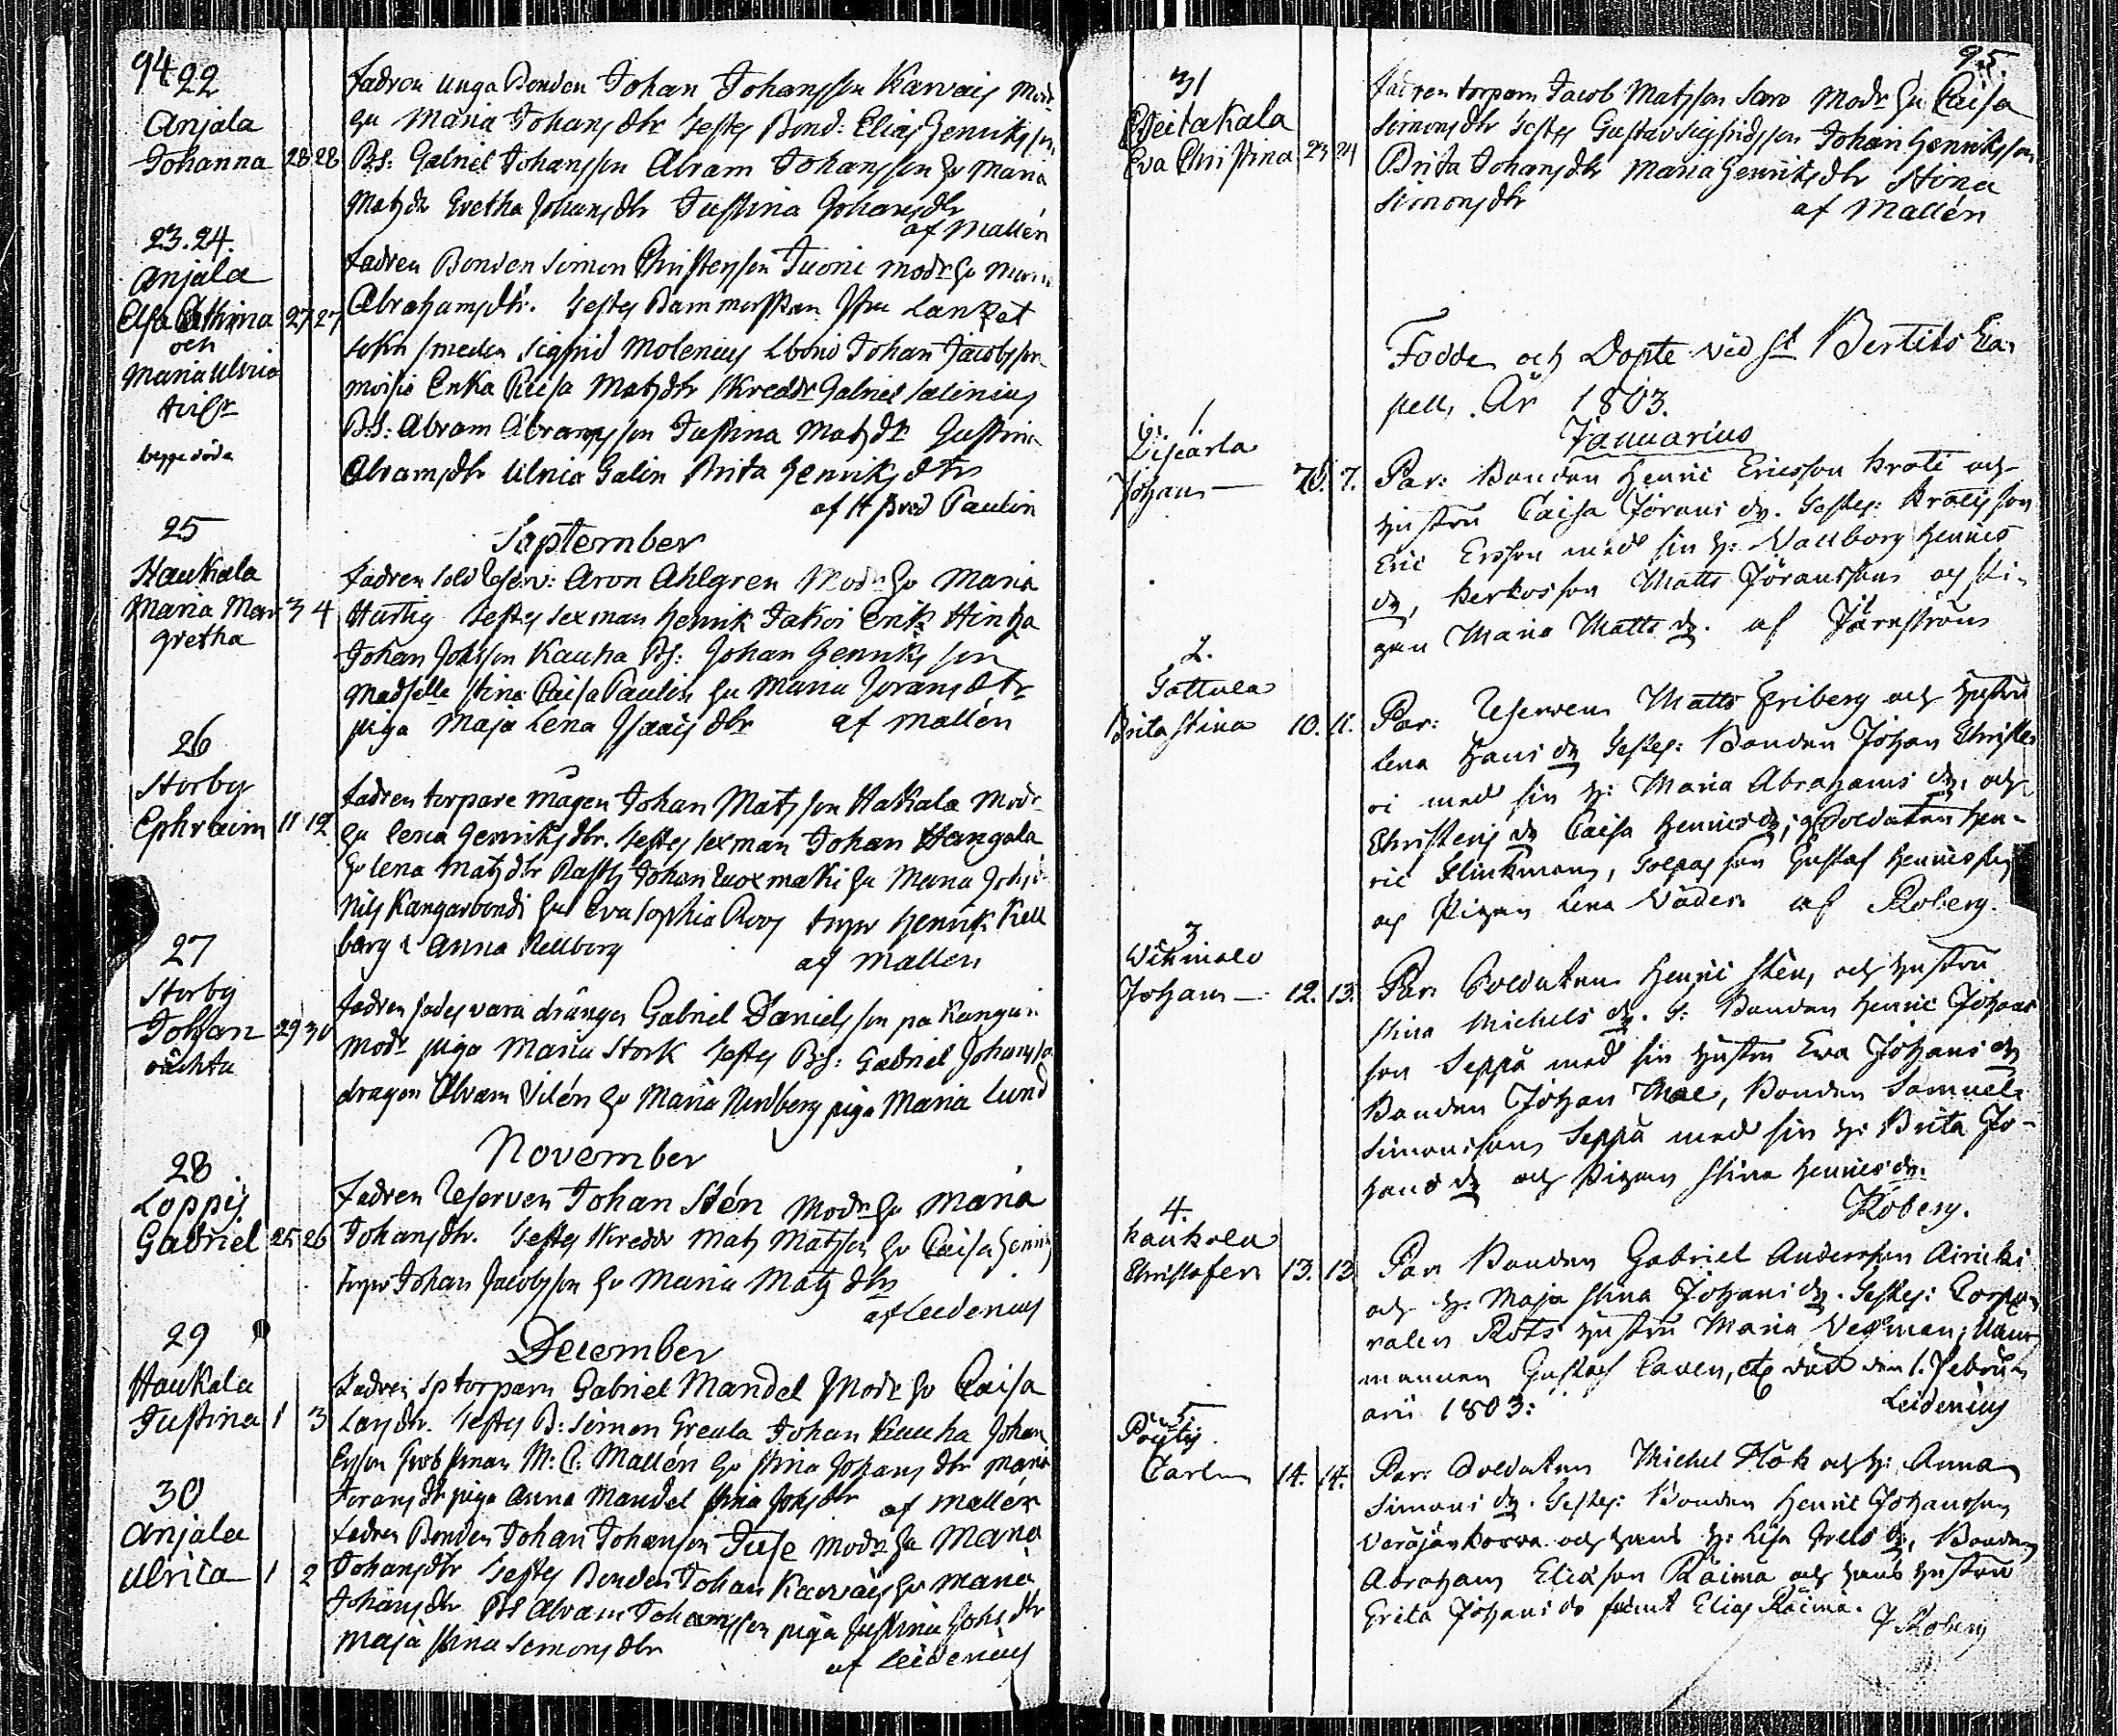 94
22
Anjala
Johanna 28 28
Fadren unga Bonden Johan Johansson Karvais Modr
hu Maria Johansdtr testes Bond: Elias Henriksson
BS: Gabriel Johansson Abram Johansson hu Maria
Matsdtr Gretha Johansdtr Justina Johansdtr
af Mallén
23.24.
Anjala
Elsa Cathrina 27 27
och
Maria Ulrica
begge döda
Fadren Bonden Simon Christersson Tuoni modr hu Maria
Abrahamsdtr. testes Barnmorskan
smeden Sigfrid Molenius Johan Jacobsson
Enka Caisa Matsdtr Skreddr Gabriel Salinius
BS: Abram Abramsson Justina Matsdtr Justina
Abramsdtr Ulrica Galin Brita Henriksdtr
af Paulin
September
25
Haukala
Maria Mar 3 4
gretha
Fadren Sold Reserv: Aron Ahlgren Modr hu Maria
Hartig testes sexman Henrik Jakoi Erik Hinka
Johan Johsson Kauha BS: Johan Henriksson
Madselle Stina Caisa Paulin hu Maria Joransdtr
piga Maja Lena Isaacsdtr af Mallén
26
Storby
Ephraim 11 12
Fadren torpare mågen Johan Matsson Hakala Modr
hu Lena Henriksdtr. testes sexman Johan Hangala
hu Lena Matsdtr Johan hu Maria Johsdtr
Nils Kangarbondi hu Eva Sophia Roos torpr Henrik Kell
berg & Anna Kellberg af Mallén
27
Storby
Johan 29 30
oächta
Fadren sades vara drängen Gabriel Danielsson på Kangari
modr piga Maria Stork testes BS: Gabriel Johansson
dragon Abram Vilén hu Maria Nordberg piga Maria Lund
November
28
Loppis
Gabriel 25 26
Fadren Reserven Johan Stén Modr hu Maria
Johansdtr. testes Skreddr Mats Matsson hu Caisa Henriks
torpr Johan Jacobsson hu Maria Matsdtr
af Leidenius
December
29
Haukala
Justina 1 3
Fadren sptorparn Gabriel Mandel Modr hu Caisa
Larsdtr. testes B: Simon Greula Johan Kauha Johan
Ersson M: C: Mallén hu Stina Johansdtr Maria
Joransdtr piga Anna Mandel Stina Johsdtr af Mallén
30
Anjala
Ulrica 1 2
Fadren Bonden Johan Johansson Juse Modr hu Maria
Johansdtr testes Bonden Johan Karvais hu Maria
Johansdtr BS Abram Johansson piga Justina Johsdtr
Maja Stina Simonsdtr af Leidenius
95.
31
Weitakala
Eva Christina 23 24
Fadren torparn Jacob Matsson Saro Modr hu Caisa
Simonsdtr testes Gustav Sigfridsson Johan Henriksson
Brita Johansdtr Maria Henriksdtr Stina
Simonsdtr af Mallén
Födde och Döpte vid St Bertils Ca-
pell, År 1803.
Januarius
1.
Johan — 7. 7.
Par: Bonden Henric Ericsson Kroti och
hustru Caisa Jörans dr. Testes:
Eric Ersson med sin h: Wallborg Henrics
dr, Kerkosson Matts Jöransson och pi-
gan Maria Matts dr. af Järnström
2.
Gattula
Brita Stina 10. 11.
Par: Reserven Matts Friberg och hustru
Lena Hans dr Testes: Bonden Johan Christe
ri med sin h: Maria Abrahams dr, och
Christers dr Caisa Henrics dr, Soldaten Hen-
ric Klinkman, Gustaf Henricsson
och Pigan Lena af Roberg.
3
Johan — 12. 13.
Par: Soldaten Henric Stén, och hustru
Stina Michels dr. T: Bonden Henric Johans
son Seppä med sin hustru Eva Johans dr
Bonden Johan, Bonden Samuel
Simonsson Seppä med sin h: Brita Jo-
hans dr och Pigan Stina Henrics dr.
Roberg.
4.
Kaukola
Christofer 13. 13
Par Bonden Gabriel Andersson Airicki
och h: Maja Stina Johans dr. Testes: Corpo-
ralen Rots hustru Maria Vegman, Nam
mannen Gustaf, död den 1. Febru-
arii 1803: Leidenius
5
Pöytis
Carl 14. 14.
Par: Soldaten Michel Hök och h: Anna
Simons dr. Testes: Bonden Henric Johansson
Veräjänkorva och hans h: Lisa Grels dr, Bonden
Abraham Eliasson Räima och hans hustru
Greta Johans dr samt Elias Räima. J Roberg